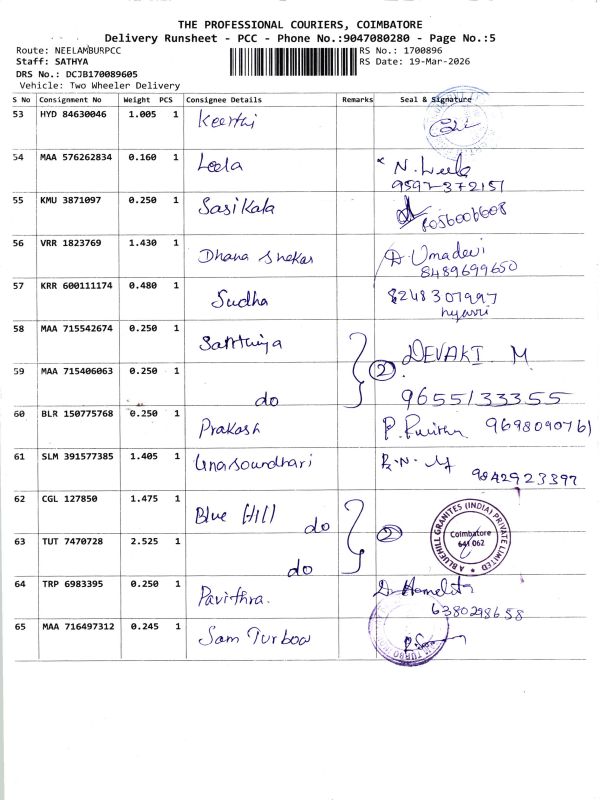 THE PROFESSIONAL COURIERS, COIMBATORE
Delivery Runsheet - PCC - Phone No.:9047080280 - Page No.:5
Route: NEELAMBURPCC
RS No.: 1700896
Staff: SATHYA
RS Date: 19-Mar-2026
DRS No.: DCJB170089605
Vehicle: Two Wheeler Delivery
S No Consignment No Weight PCS Consignee Details Remarks Seal & Signature
53 HYD 84630046 1.005 1 Keerthi
54 MAA 576262834 0.160 1 Leela N. Leela
9597372151
55 KMU 3871097 0.250 1 Sasikala 8056006608
56 VRR 1823769 1.430 1 Dhana Shekar D. Umadevi
8489699650
57 KRR 600111174 0.480 1 Sudha 8248307997
58 MAA 715542674 0.250 1 Santhiya DEVAKI M
59 MAA 715406063 0.250 1 do 2 9655133355
60 BLR 150775768 0.250 1 Prakash 9698090761
61 SLM 391577385 1.405 1 Gnasoundhari 9842923397
62 CGL 127850 1.475 1 Blue Hill do
63 TUT 7470728 2.525 1 do 2
A BLUEHILL GRANITES (INDIA) PRIVATE LIMITED
Coimbatore
641 062
64 TRP 6983395 0.250 1 Pavithra. 6380298658
65 MAA 716497312 0.245 1 Sam Turbow